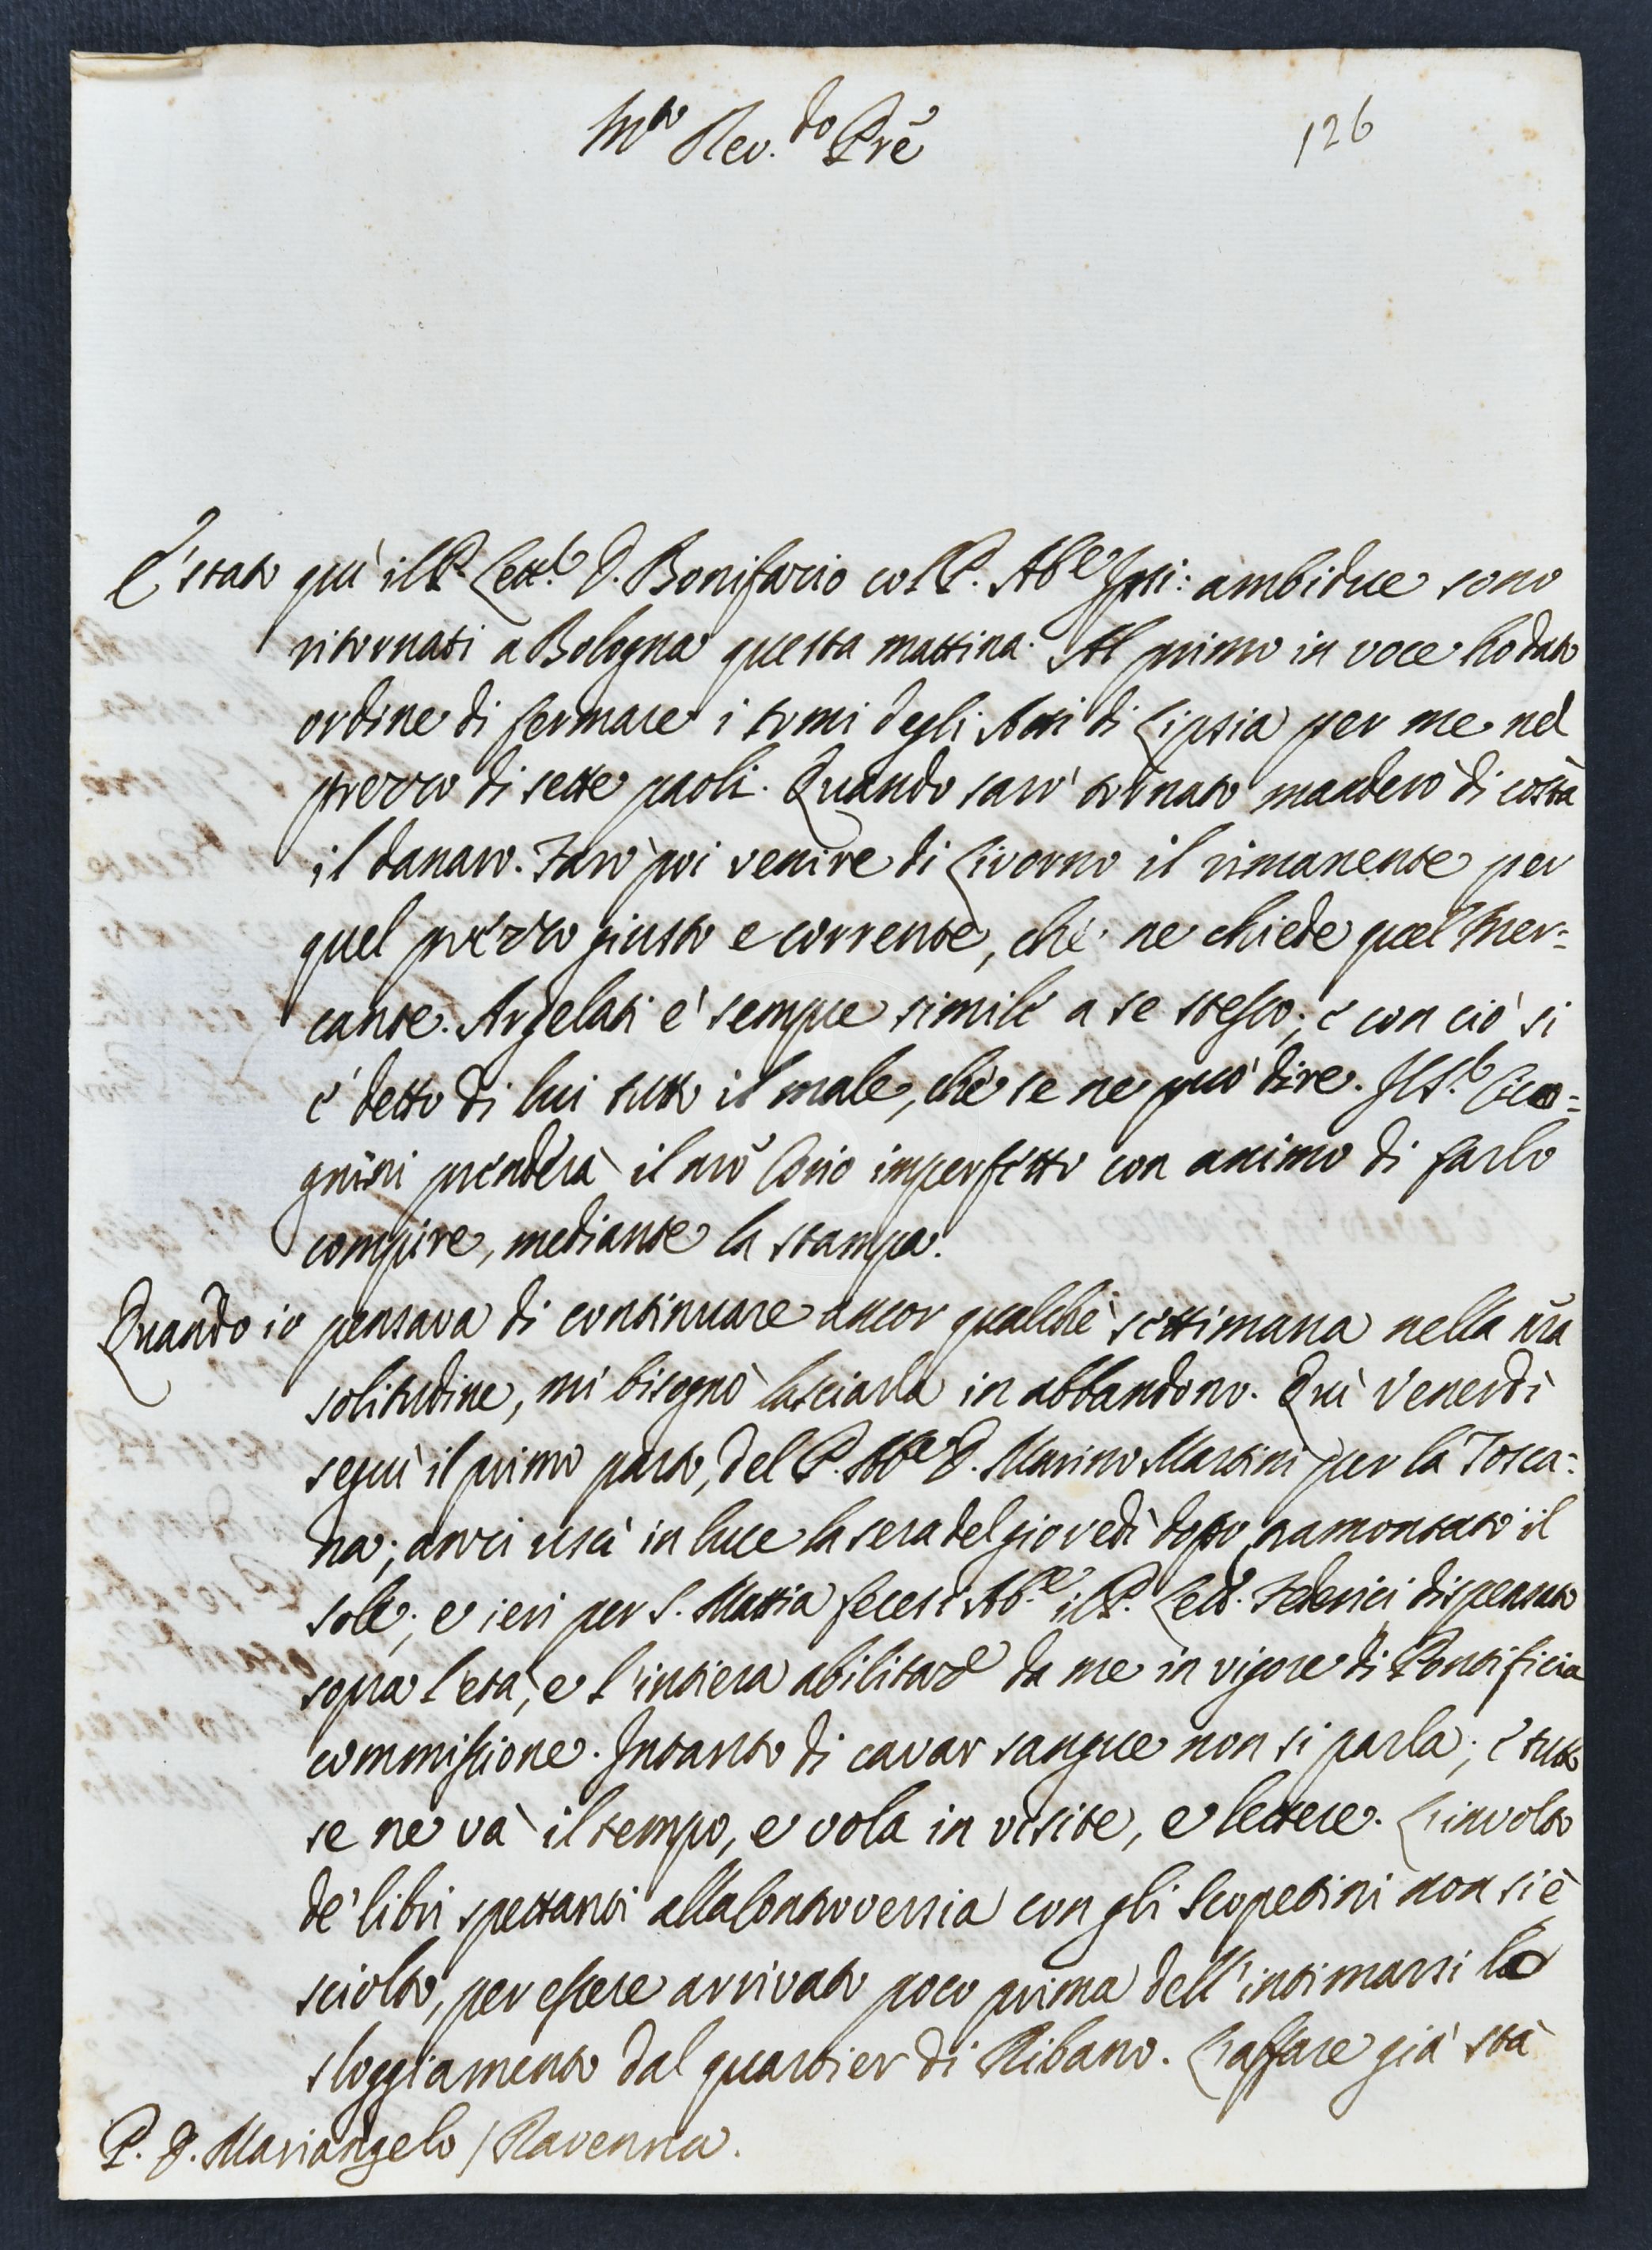 M.to Rev.do Prē
126
È stato quì il P. Lett.e D. Bonifazio col P. Ab.e Issi: ambidue sono
ritornati a Bologna questa mattina. Al primo in voce ho dato
ordine di fermare i tomi degli Atti di Lipsia per me nel
prezzo di sette paoli. Quando sarò tornato manderò di costà
il danaro. Farò poi venire di Livorno il rimanente per
quel prezzo giusto e corrente, che ne chiede quel Mer=
cante. Argelati è sempre simile a se stesso; e con ciò si
è detto di lui tutto il male, che se ne può dire. Il S.r Cico=
gnini prenderà il nrō Conio imperfetto con animo di farlo
compire, mediante la stampa.
Quando io pensava di continuare ancor qualche settimana nella mia
solitudine, mi bisognò lasciarla in abbandono. Quì Venerdì
seguì il primo parto, del P. Ab.e D. Marino Martini per la Tosca=
na; anzi uscì in luce la sera del giovedì dopo tramontato il
sole; e ieri per S. Mattia fecesi Ab.e il P. Lett. Federici dispensato
sopra l'età, e l'intiera abilitaz.e da me in vigore di Pontificia
commissione. Intanto di cavar sangue non si parla; e tutto
se ne và il tempo, e vola in visite, e lettere. L'involto
de' libri spettanti alla Controversia con gli Scopetini non si è
sciolto, per essere arrivato poco prima dell'intimarsi lo
sloggiamento dal quartier di Ribano. L'affare già stà
P. D. Mariangelo / Ravenna.